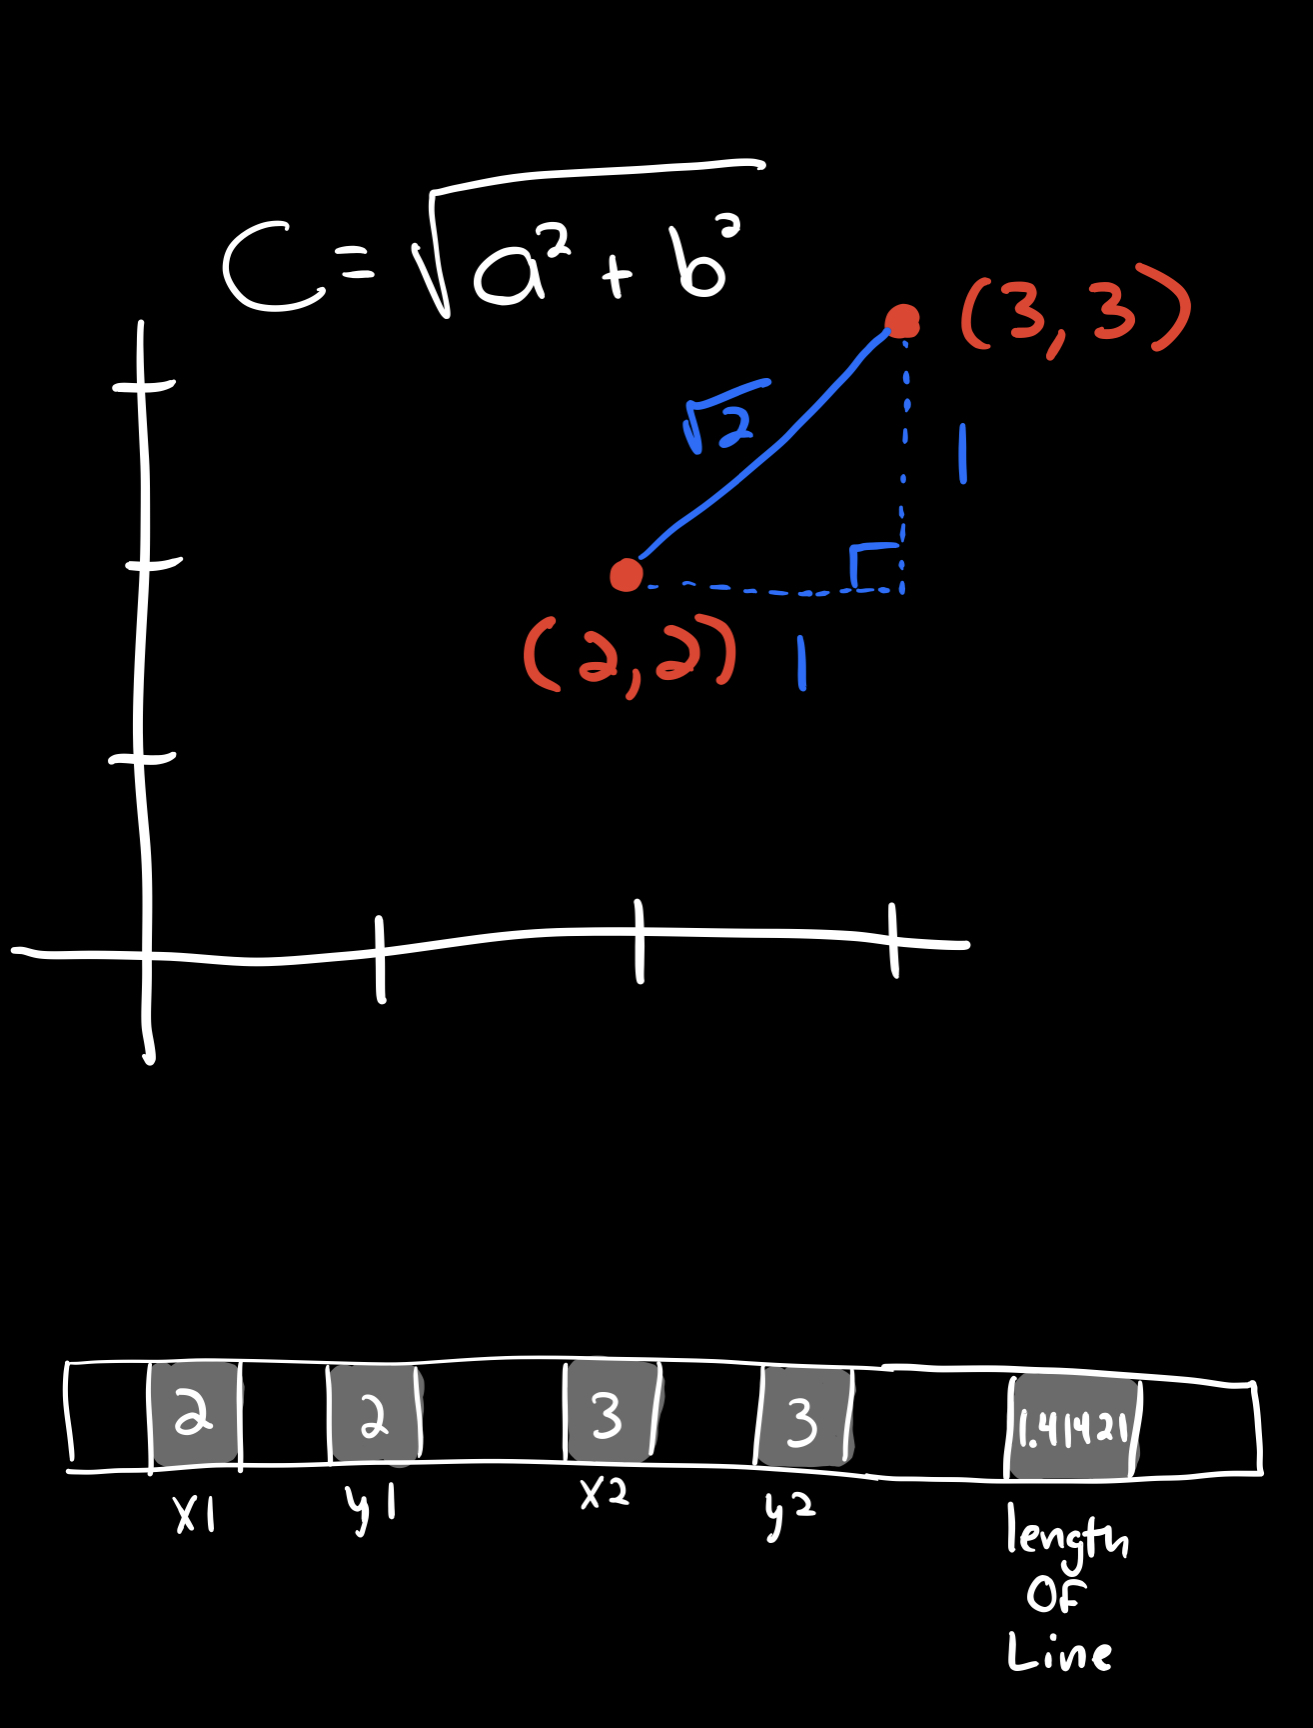 C = √a² + b²
(3, 3)
√2
1
(2, 2)
1
2 2 3 3 1.41421
x1 y1 x2 y2 length
Of
Line